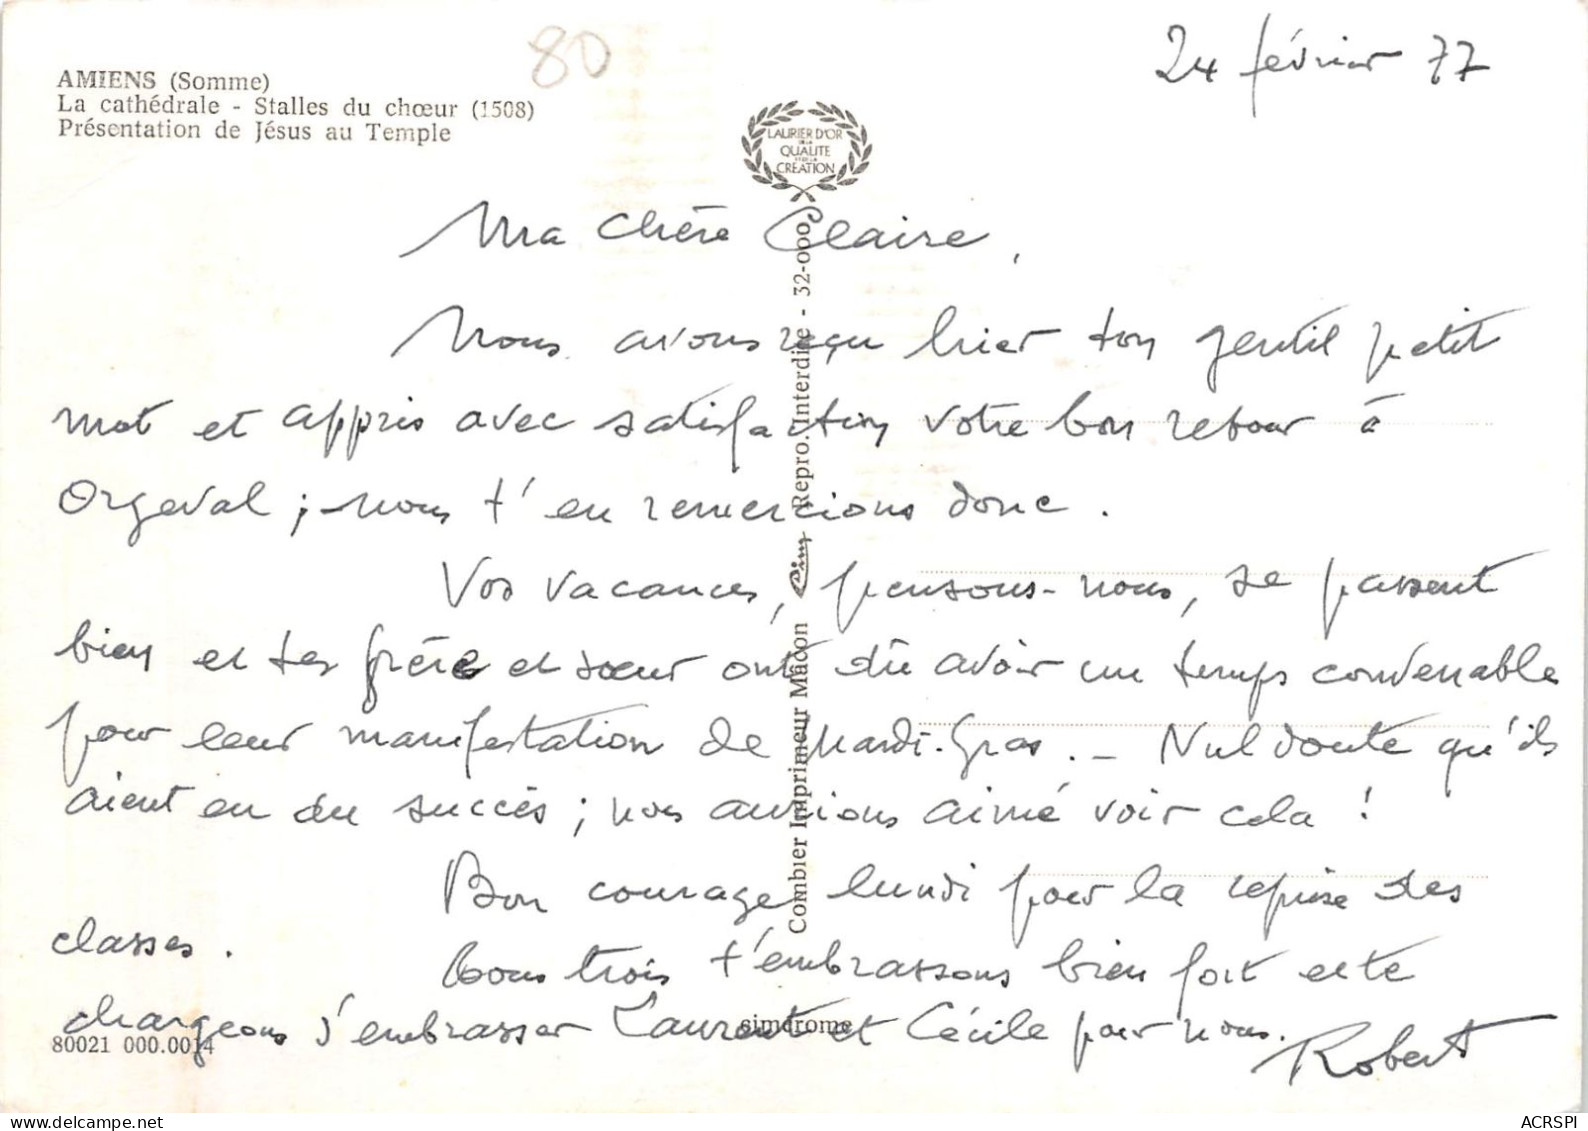 80
24 février 77
AMIENS (Somme)
La cathédrale - Stalles du chœur (1508)
Présentation de Jésus au Temple
LAURIER D'OR
DE LA
QUALITE
ET DE LA
CREATION
Ma chère Claire,
Nous avons reçu hier ton gentil petit
mot et appris avec satisfaction votre bon retour à
Orgeval ; nous t'en remercions donc.
Vos vacances, pensons-nous, se passent
bien et tes frère et sœur ont dû avoir un temps convenable
pour leur manifestation de Mardi-Gras. - Nul doute qu'ils
aient eu du succès ; nous aurions aimé voir cela !
Bon courage lundi pour la reprise des
classes.
Tous trois t'embrassons bien fort et te
chargeons d'embrasser Laurent et Cécile pour nous.
Robert
Combier Imprimeur Mâcon Cim Repro. Interdite - 32-000
simdrome
80021 000.0014
delcampe.net
ACRSPI